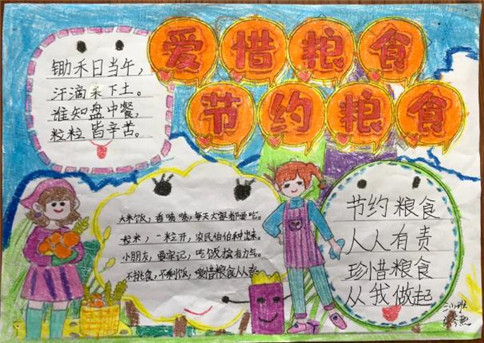 爱惜粮食
节约粮食
锄禾日当午，
汗滴禾下土。
谁知盘中餐，
粒粒皆辛苦。
大米饭，香喷喷，每天大家都要吃。
一粒米，一粒汗，农民伯伯种出来。
小朋友，要牢记，吃饭
不挑食，不剩饭，爱惜粮食人人
节约粮食
人人有责
珍惜粮食
从我做起